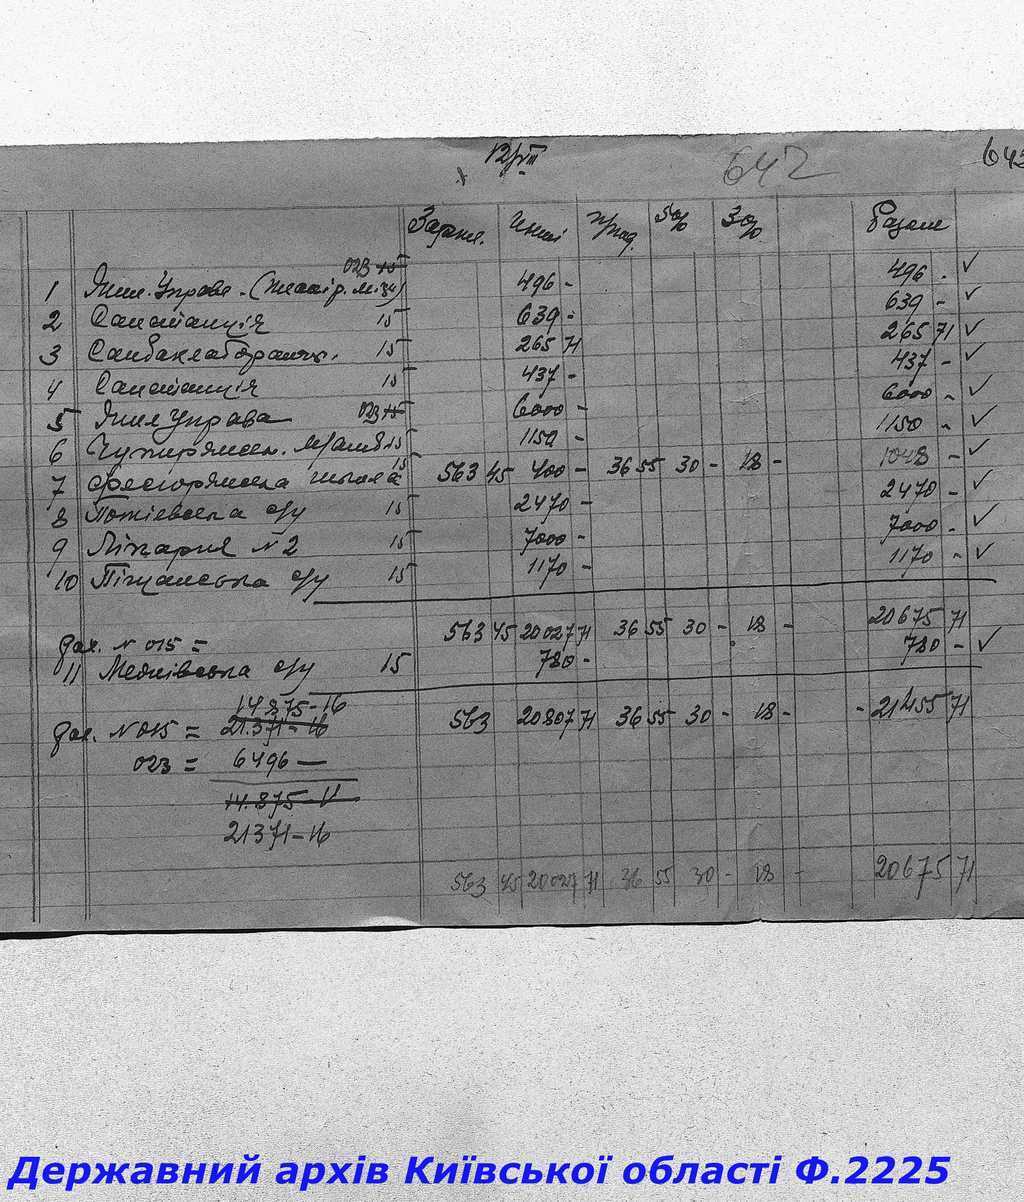 12/VIII 642 643
Інші прибд. 5% 3% Разом
023 15
1 Управа. 496 - 496 - ✓
2 Санстанція 15 639 - 639 - ✓
3 15 265 71 265 71 ✓
4 Санстанція 15 437 - 437 - ✓
5 Управа 023 15 6000 - 6000 - ✓
6 15 1150 - 1150 - ✓
7 школа 15 563 45 400 - 36 55 30 - 18 - 1048 - ✓
8 с/у 15 2470 - 2470 - ✓
9 Лікарня N 2 15 7000 - 7000 - ✓
10 Піщанська с/у 15 1170 - 1170 - ✓
N 015 = 563 45 20027 71 36 55 30 - 18 - 20675 71
11 с/у 15 780 - 780 - ✓
14875-16
N 015 = 21.371-16 563 20807 71 36 55 30 - 18 - - 21455 71
023 = 6496 —
14.875-11
21371-16
563 45 20027 71 36 55 30 - 18 - 20675 71
Державний архів Київської області Ф.2225